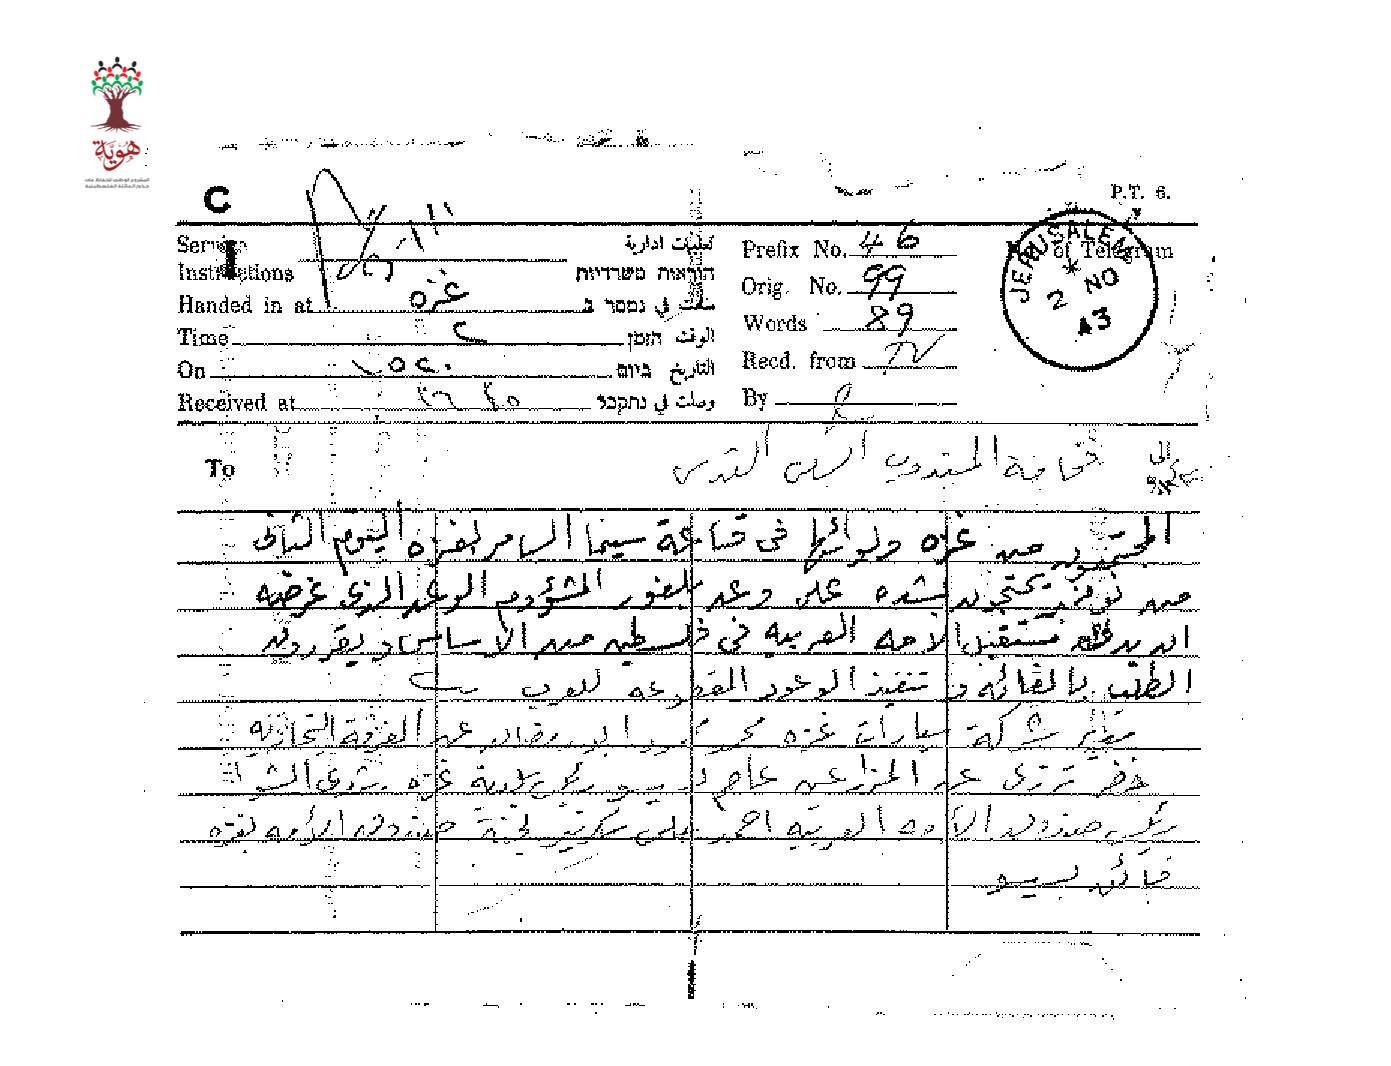 هوية
المشروع الوطني للحفاظ على
جذور العائلة الفلسطينية
P.T. 6.
C
Service
Instructions
تعليمات ادارية
הוראות משרדיות
Prefix No. 46
No. of Telegram
JERUSALEM
2 NO
43
Handed in at غزه سلمت في נמסר ב
Orig. No. 99
Time ٢ الوقت הזמן
Words 89
On التاريخ ביום
Recd. from
Received at وصلت في נתקבל
By
To فخامة المندوب السامي القدس الى
אל
المجتمعون من غزه ولوائها في قاعة سينما السامر بغزه اليوم الثاني
من نوفمبر يحتجون بشده على وعد بلفور المشؤوم الوعد الذي غرضه
مستقبل الامه العربيه في فلسطين من الاساس ويقررون
الطلب بالغائه و تنفيذ الوعود المقطوعه للعرب
شركة سيارات غزه رمضان عن الغرفة التجاريه
خضر ترزي عن المزارعين عاصم بسيسو رئيس بلدية غزه رشدي الشوا
رئيس صندوق الأمه العربيه احمد سكرتير لجنة صندوق الأمه بغزه
فائق بسيسو